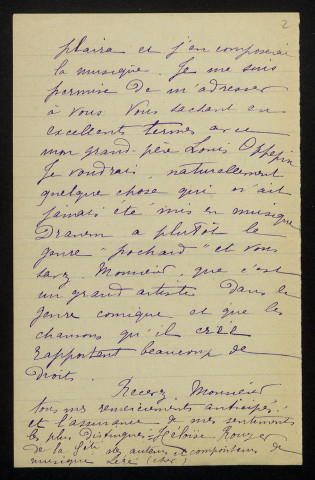 2
plaira et j'en composerai
la musique. Je me suis
permise de m'adresser
à vous vous sachant en
excellents termes avec
mon grand-père Louis
Je voudrais, naturellement
quelque chose qui n'ait
jamais été mis en musique
Dranem a plutôt le
genre "pochard" et vous
savez, Monsieur, que c'est
un grand artiste dans le
genre comique et que les
chansons qu'il crée
rapportent beaucoup de
droits.
Recevez, Monsieur
tous mes remerciements anticipés
et l'assurance de mes sentiments
les plus distingués. Héloïse
de la Sté des auteurs et compositeurs de
musique Léré (Cher)